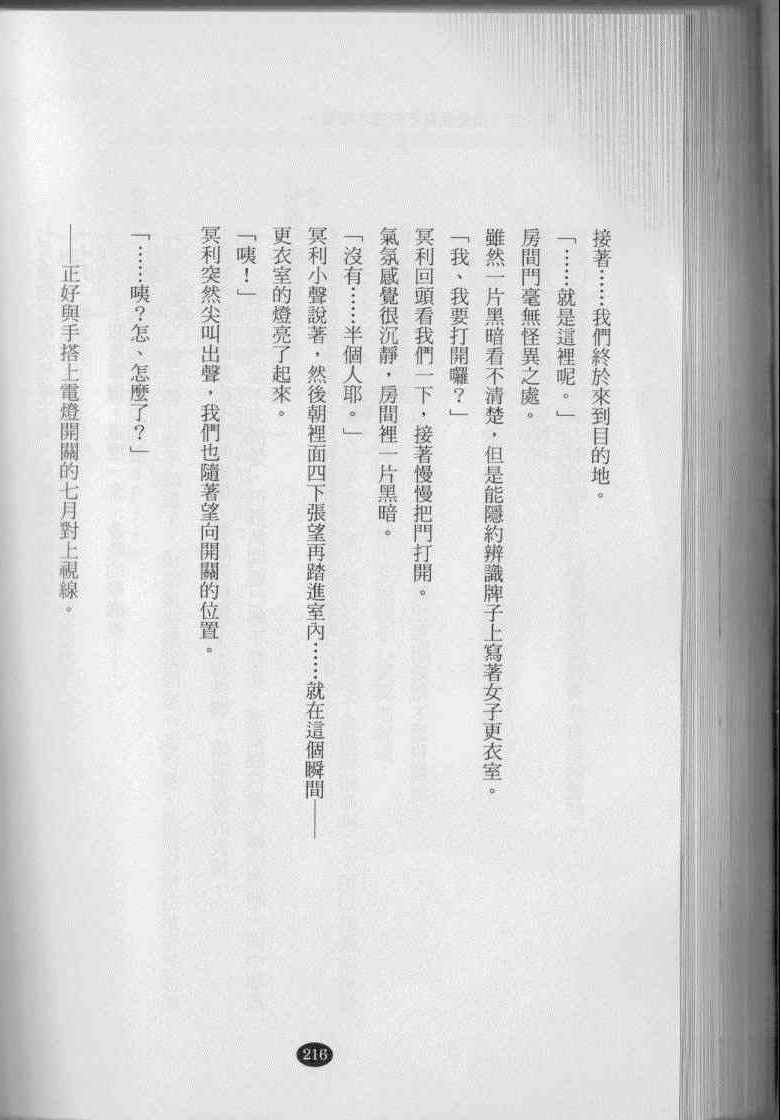 接著……我們終於來到目的地。
「……就是這裡呢。」
房間門毫無怪異之處。
雖然一片黑暗看不清楚，但是能隱約辨識牌子上寫著女子更衣室。
「我、我要打開囉？」
冥利回頭看我們一下，接著慢慢把門打開。
氣氛感覺很沉靜，房間裡一片黑暗。
「沒有……半個人耶。」
冥利小聲說著，然後朝裡面四下張望再踏進室內……就在這個瞬間——
更衣室的燈亮了起來。
「咦！」
冥利突然尖叫出聲，我們也隨著望向開關的位置。
「……咦？怎、怎麼了？」
——正好與手搭上電燈開關的七月對上視線。
216